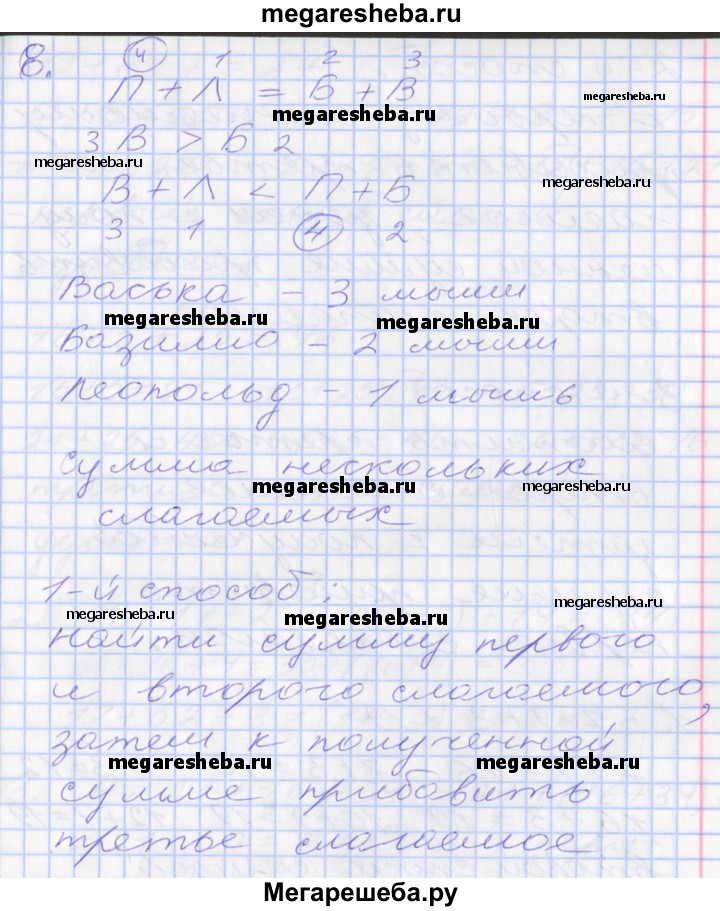 megaresheba.ru
8.
④ 1 2 3
П + Л = Б + В
megaresheba.ru
megaresheba.ru
3 В > Б 2
megaresheba.ru
В + Л < П + Б
megaresheba.ru
3 1 ④ 2
Васька – 3 мыши
megaresheba.ru
megaresheba.ru
Базилио – 2 мыши
Леопольд – 1 мышь
сумма нескольких
megaresheba.ru
megaresheba.ru
слагаемых
1-й способ:
megaresheba.ru
megaresheba.ru
megaresheba.ru
найти сумму первого
и второго слагаемого,
затем к полученной
megaresheba.ru
megaresheba.ru
сумме прибавить
третье слагаемое
Мегарешеба.ру